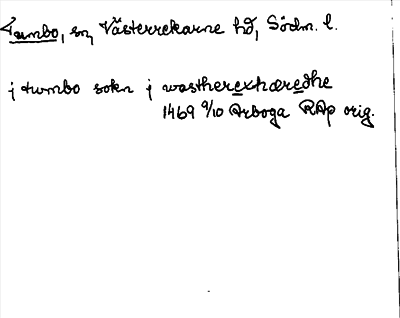 Tumbo, sn, Västerrekarne hd, Södm. l.
j tumbo sokn j wastherexhæredhe
1469 9/10 Arboga RAp orig.